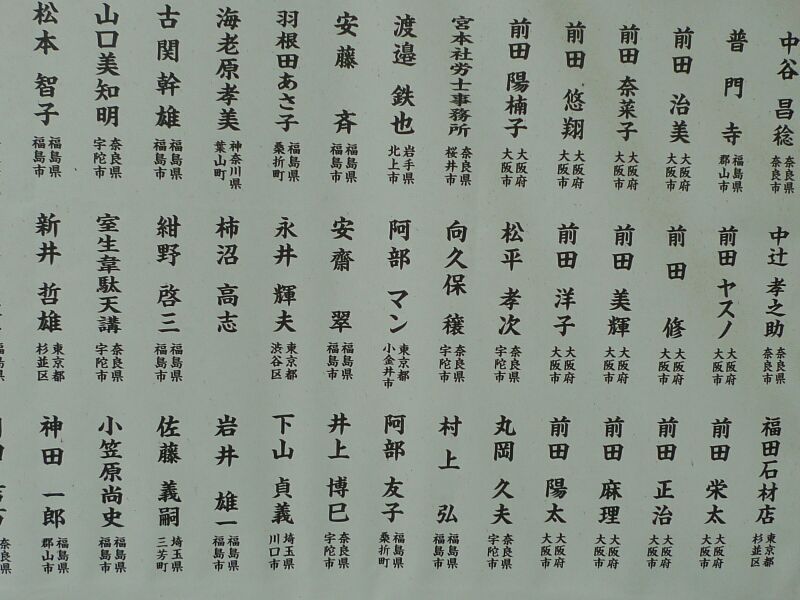 中谷 昌稔 奈良県 奈良市
普門寺 福島県 郡山市
前田 治美 大阪府 大阪市
前田 奈菜子 大阪府 大阪市
前田 悠翔 大阪府 大阪市
前田 陽楠子 大阪府 大阪市
宮本社労士事務所 奈良県 桜井市
渡邉 鉄也 岩手県 北上市
安藤 斉 福島県 福島市
羽根田あさ子 福島県 桑折町
海老原孝美 神奈川県 葉山町
古関 幹雄 福島県 福島市
山口美知明 奈良県 宇陀市
松本 智子 福島県 福島市
中辻 孝之助 奈良県 奈良市
前田 ヤスノ 大阪府 大阪市
前田 修 大阪府 大阪市
前田 美輝 大阪府 大阪市
前田 洋子 大阪府 大阪市
松平 孝次 奈良県 宇陀市
向久保 穣 奈良県 宇陀市
阿部 マン 東京都 小金井市
安齋 翠 福島県 福島市
永井 輝夫 東京都 渋谷区
柿沼 高志
紺野 啓三 福島県 福島市
室生韋駄天講 奈良県 宇陀市
新井 哲雄 東京都 杉並区
福田石材店 東京都 杉並区
前田 栄太 大阪府 大阪市
前田 正治 大阪府 大阪市
前田 麻理 大阪府 大阪市
前田 陽太 大阪府 大阪市
丸岡 久夫 奈良県 宇陀市
村上 弘 福島県 福島市
阿部 友子 福島県 桑折町
井上 博巳 奈良県 宇陀市
下山 貞義 埼玉県 川口市
岩井 雄一 福島県 福島市
佐藤 義嗣 埼玉県 三芳町
小笠原尚史 福島県 福島市
神田 一郎 福島県 郡山市